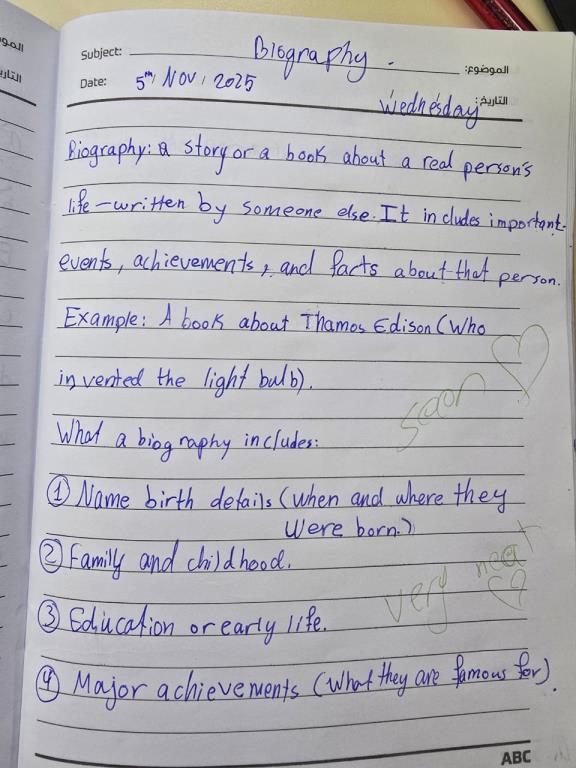 Subject: Biography. الموضوع:
Date: 5th, Nov, 2025 التاريخ:
Wednesday
Biography: a story or a book about a real person's
life – written by someone else. It includes important
events, achievements, and facts about that person.
Example: A book about Thamos Edison (Who
invented the light bulb).
soon
What a biography includes:
① Name birth details (when and where they
were born.)
② Family and childhood.
very neat
③ Education or early life.
④ Major achievements (What they are famous for).
ABC